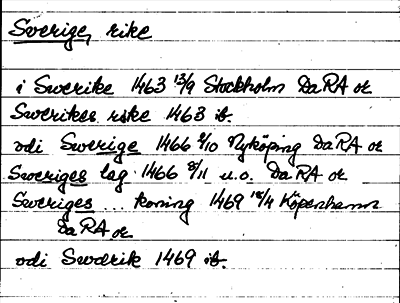 Sverige, rike
i Swerike 1463 13/9 Stockholm DaRA or
Swerikes rike 1463 ib.
odi Swerige 1466 2/10 Nyköping DaRA or
Sweriges lag 1466 8/11 u.o. DaRA or
Sweriges ... koning 1469 18/4 Köpenhamn
DaRA or
odi Swdrik 1469 ib.